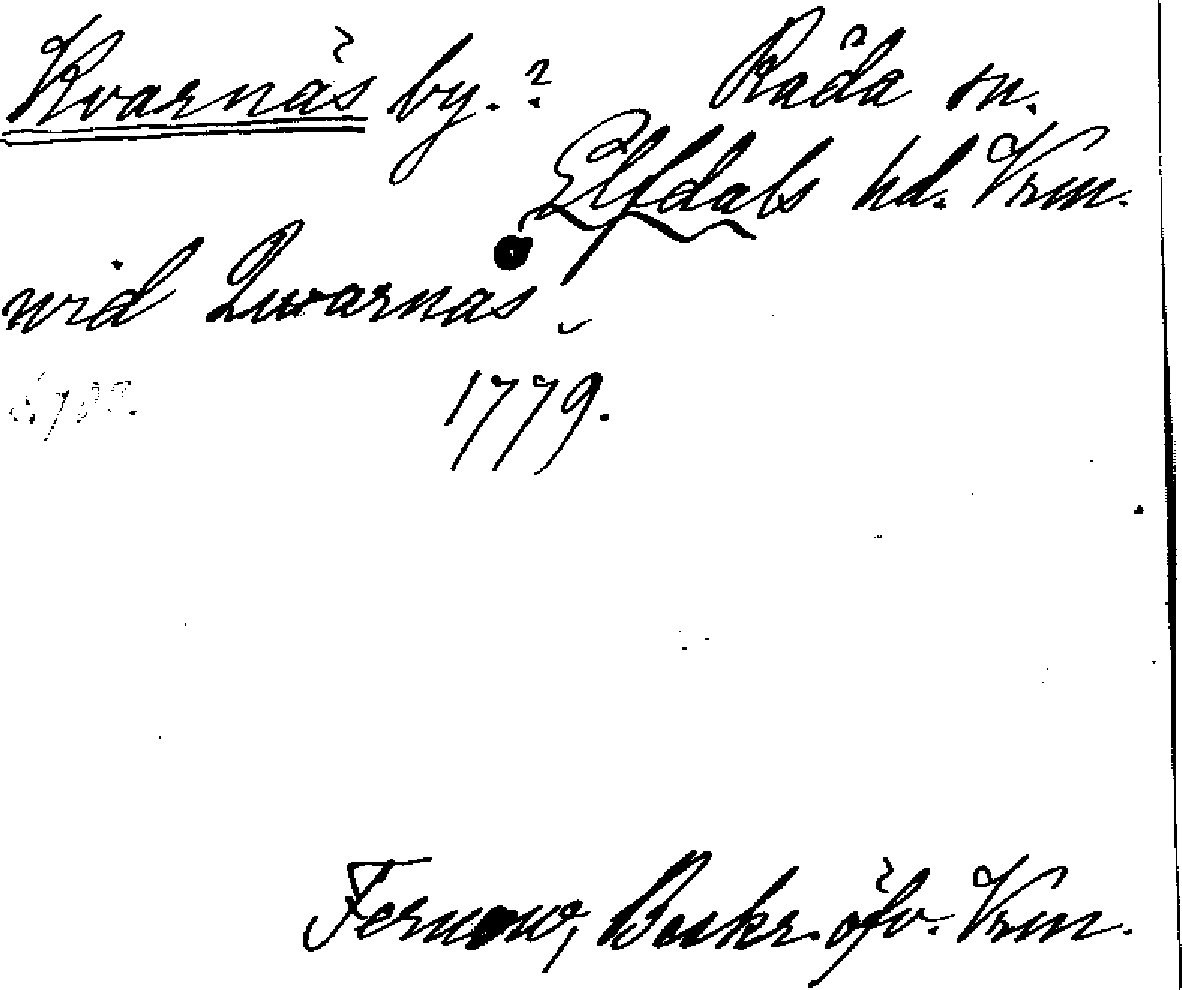 Kvarnäs by.? Råda sn.
Elfdals hd. Vrm.
wid Qwarnäs
1779.
Fernow, Beskr. öfv. Vrm.